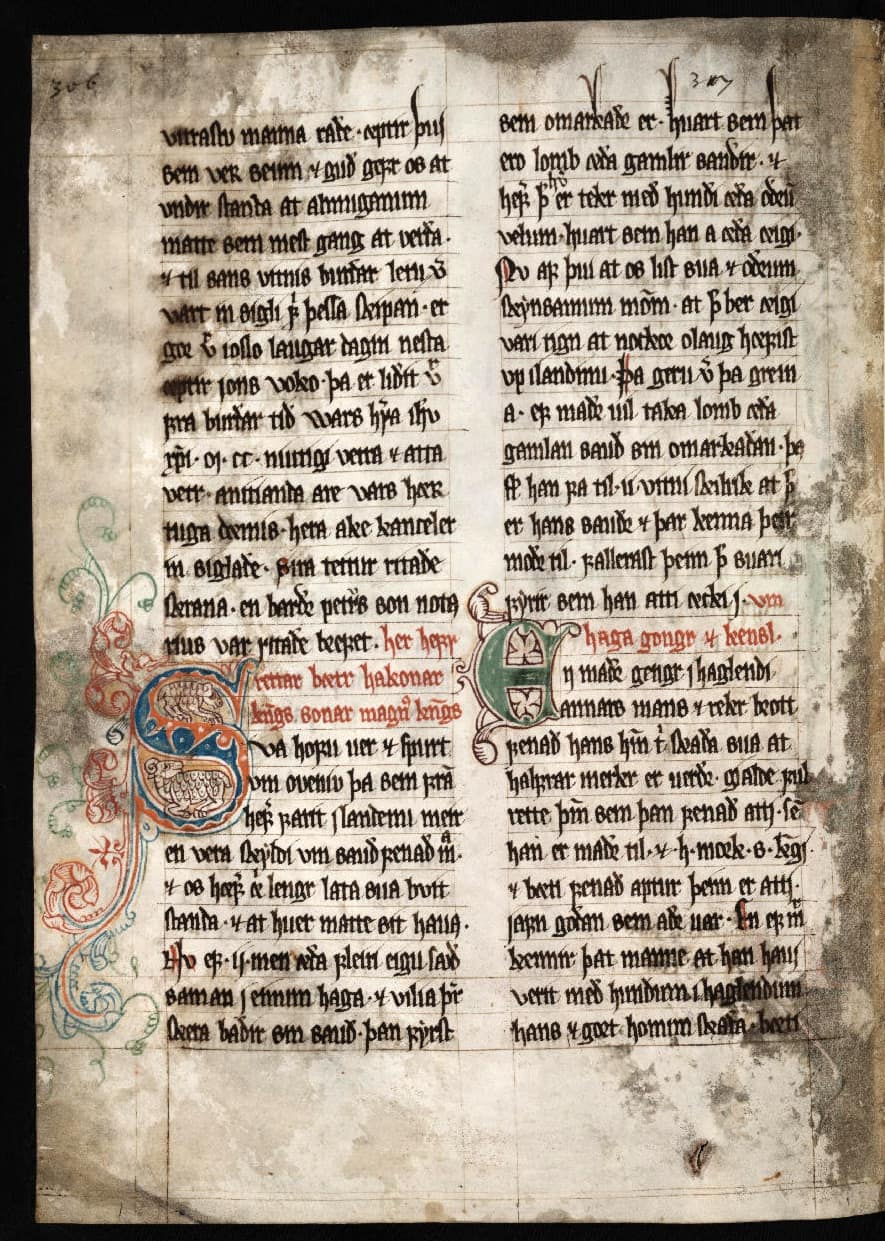 306
307
vitrastu manna raðe · eptir þui
sem ver seum ⁊ guð gefr os at
vndir standa at almuganum
matte sem mest gang at verða ·
⁊ til sans vitnis burðar letu v̄
vart in sigli f̄ þessa skipan · er
gor v͛ i oslo laugar dagin nesta
eptir jons voko · þa er liðit v͛
fra burðar tið vars h̄ra ih̄u
xp̄i · m · cc · niutigi vetra ⁊ atta
vetr · anittanda are vars hær
tuga doemis · hera ake kanceler
in siglaðe · Sira teitur ritaðe
sketana · en barðe petrs son nota
rius var ritaðe beeret · her hefr
rettar bœtr hakonar
kn̄gs sonar magn᷒ kn̄gs
Sva horfu uer ⁊ spurt
vm oveniu þa sem fra
hefr farit islandemi meir
en vera skyldi vm sauð fenað m̄ ·
⁊ os hœfir ei lengr lata sua buit
standa · ⁊ at huer matte sit haua ·
Nv ef · ij · men eða fleiri eigu sauð
saman j einum haga · ⁊ vilia þr̄
skera baðir sin sauð · þan fyrst
sem omarkaðe er · huart sem þat
ero lomb eða gamlir sauðir · ⁊
hefr þ er tekr með hundi eða oðru
velum · huart sem han a eða eigi ·
Nv af þui at os list sua ⁊ oðrum
skynsamum mōm · at þ̄ ber eigi
vari tign at nockce olaug hœfist
vp i landinu · Þa geru v̄ þa grein
a · ef maðr uil taka lomb eða
gamlan sauð sin omarkaðan · þa
sk̄ han fa til · ii · vitni skilrik at þ̄
er hans sauðr ⁊ þar kenna þeir
moðr til · fallerast þem þ̄ suari
fyrir sem han atti ecki j · vm
haga gongr ⁊ kensl ·
En maðr gengr j haglendi
annars mans ⁊ rekr brott
fenað hans hm̄ t̄ skaða sua at
halfrar merkr er uerðr · gialde ful
rette þm̄ sem þan fenað atti · sē
han er maðr til · ⁊ · h · mork · s · kn̄gi
⁊ bœti fenað aptur þem er atti ·
jafn goðan sem aðr uar · En ef m̄
kennir þat manne at han haui
verit með hundum i haglendum
hans ⁊ gœrt honum skaða · bœti